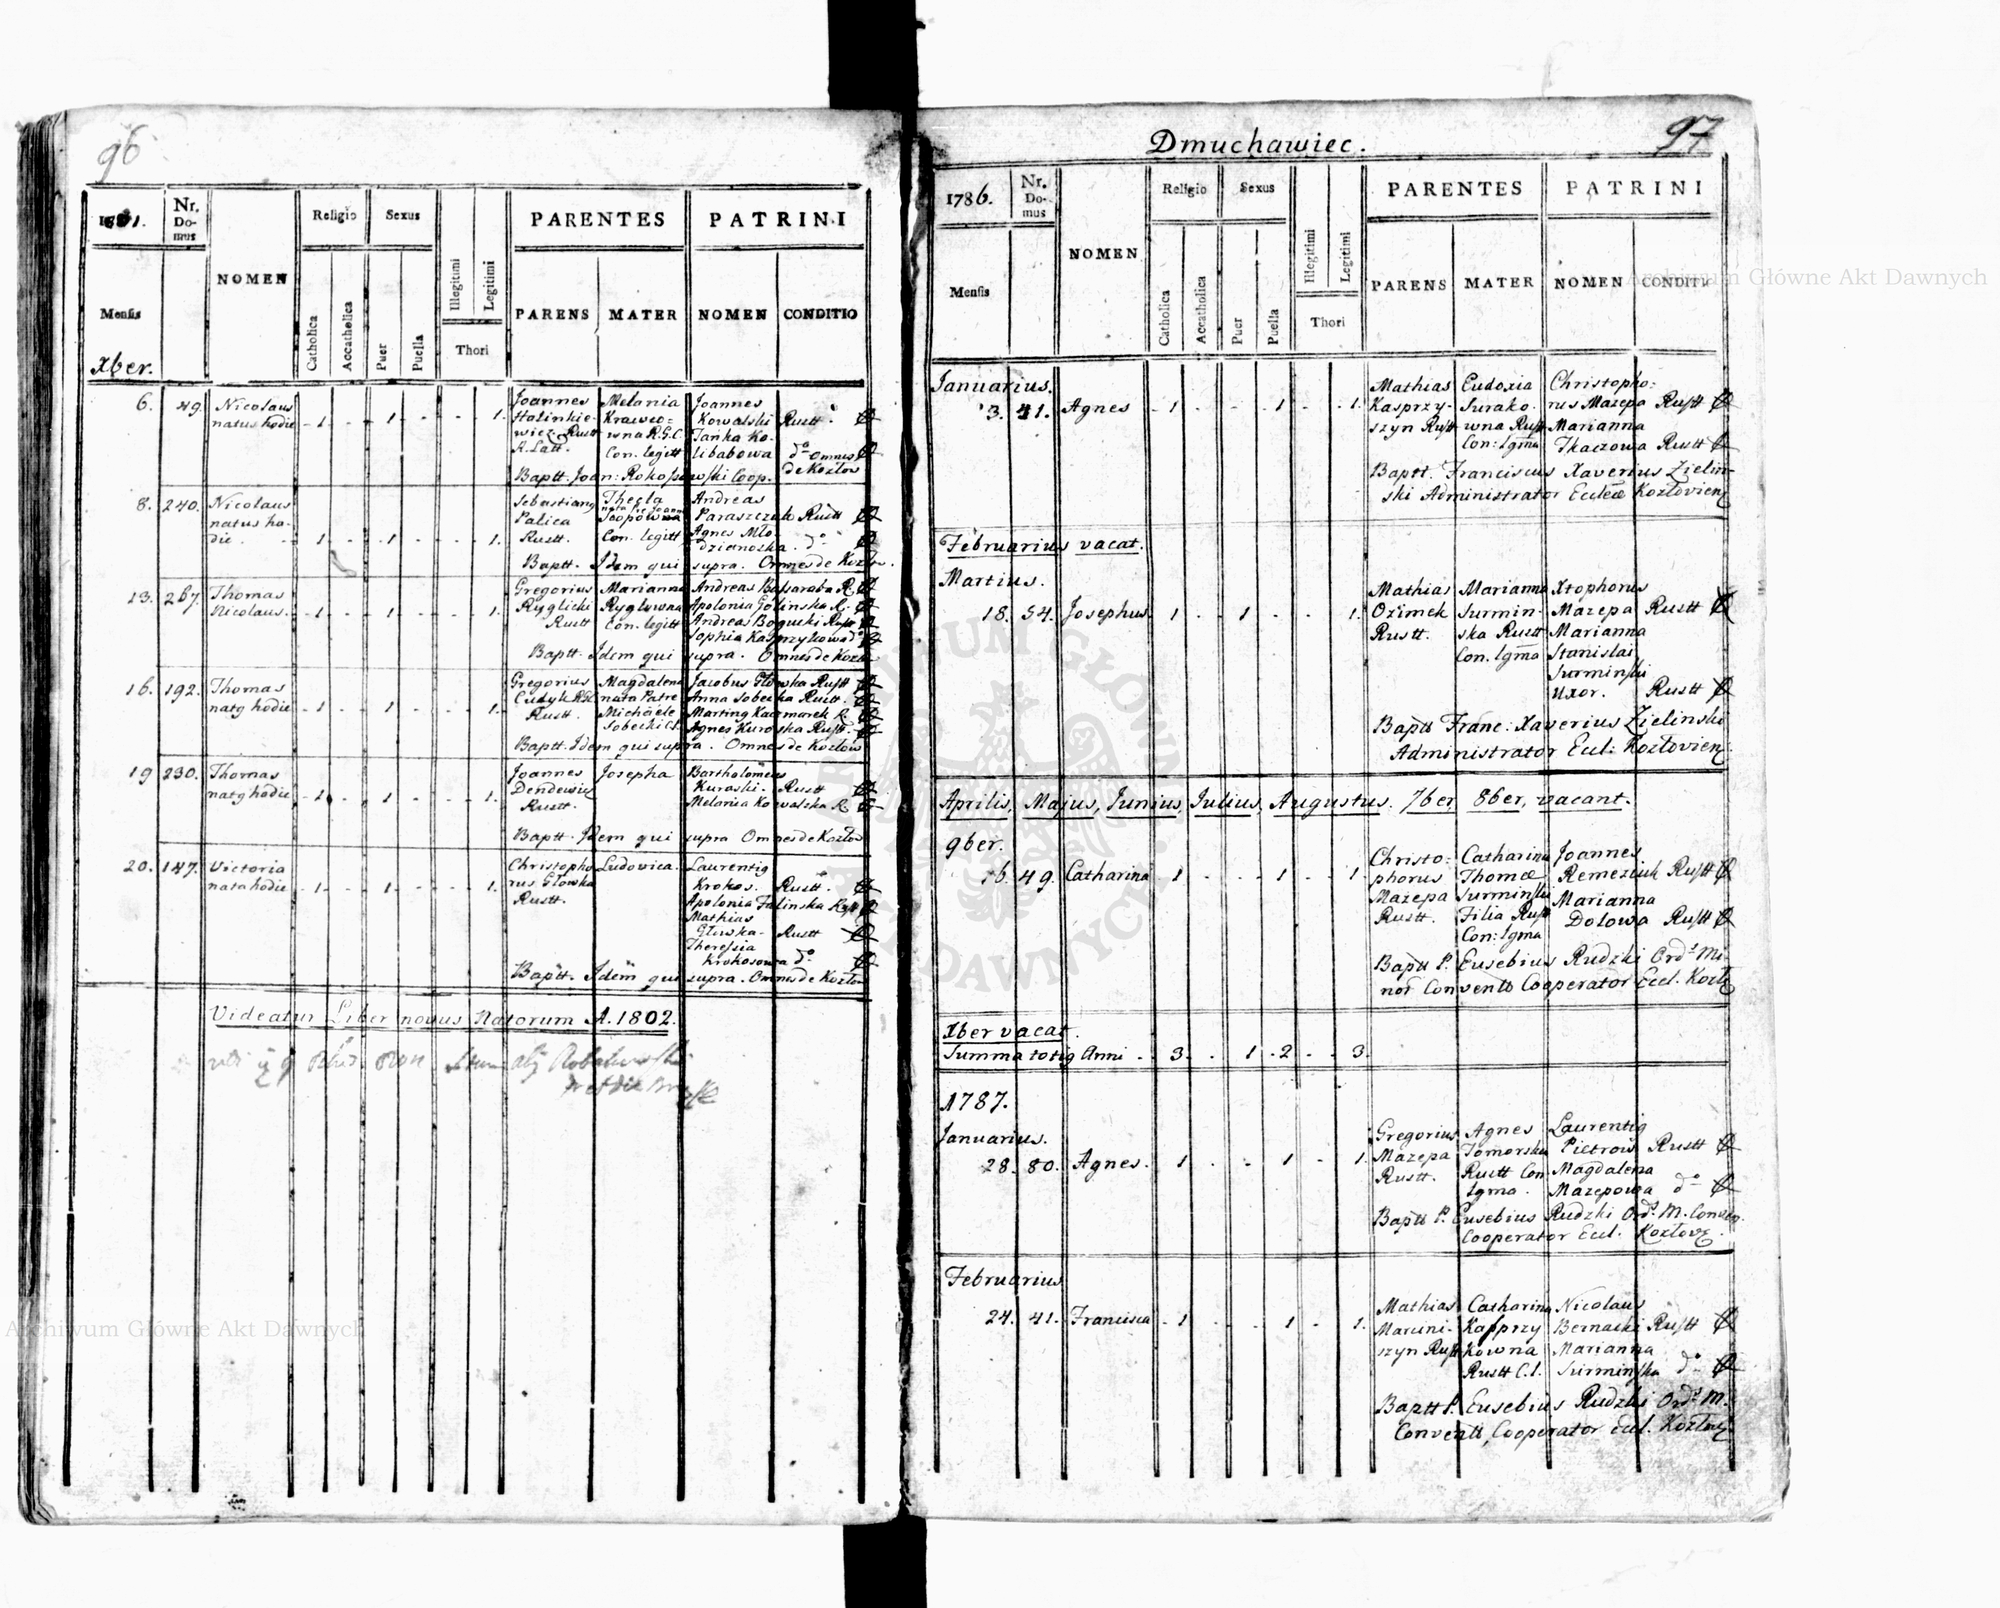 96
1801.
Nr. Do- mus
NOMEN
Religio
Sexus
Illegitimi
Legitimi
PARENTES
PATRINI
Mensis
Catholica
Accatholica
Puer
Puella
Thori
PARENS
MATER
NOMEN
CONDITIO
Xber.
6. 49. Nicolaus Joannes Melania Joannes
natus hodie 1 1 1. Halinkie- Krawco= Kowalski Rustt
wicz Rustt wna R.G.C. Tańka Ko-
R. Latt. Con. legitt libabowa do Omnes
Baptt. Joan: Rokossowski Coop. de Kozłow
8. 240. Nicolaus Sebastiang Thecla Andreas
natus ho- Palica Paraszczuk Rustt
die. 1 1 1. Rustt. Con. legitt Agnes Mło-
dzianoska. do
Baptt. Idem qui supra. Omnes de Kozło.
13. 267. Thomas Gregorius Marianna Andreas Basaraba R.
Nicolaus. 1 1 1. Ryglicki Ryglowna Apolonia Golinska R.
Rustt Con. legitt Andreas Bogucki Rustt
Sophia Kasprzykowa do
Baptt. Idem qui supra. Omnes de Kozło
16. 192. Thomas Gregorius Magdalena Jacobus Głowska Rustt
natg hodie 1 1 1. nata Patre Anna Sobecka Rustt.
Rustt. Michäele Marting Kaczmarek R.
Sobecki C.l. Agnes Kuroska Rustt.
Baptt. Idem qui supra. Omnes de Kozłow
19 230. Thomas Joannes Josepha Bartholomeus
natg hodie 1 1 1. Dendewicz Kuroski. Rustt
Rustt. Melania Kowalska R.
Baptt. Idem qui supra Omnes de Kozłow
20. 147. Victoria Christopho Ludovica. Laurentig
nata hodie 1 1 1. rus Głowska Krokos. Rustt.
Rustt. Apolonia Falinska Rustt
Mathias
Głowska- Rustt
Theressia
Krokosowa do
Baptt. Idem qui supra. Omnes de Kozłow
Videatur Liber novus Natorum A. 1802.
Dmuchawiec.
97
1786.
Nr. Do- mus
NOMEN
Religio
Sexus
Illegitimi
Legitimi
PARENTES
PATRINI
Mensis
Catholica
Accatholica
Puer
Puella
Thori
PARENS
MATER
NOMEN
CONDITIO
Januarius. Mathias Eudoxia Christopho:
3. 41. Agnes 1 1 1. Kasprzy- Surako- rus Mazepa Rustt
szyn Rustt wna Rustt Marianna
Con: lgma Tkaczowa Rustt
Baptt. Franciscus Xaverius Zielin-
ski Administrator Eccleæ Kozłovieng
Februarius vacat.
Martius. Mathias Marianna Xtophorus
18. 54. Josephus. 1 1 1. Ozimek Surmin- Mazepa Rustt
Rustt. ska Rustt Marianna
Con. lgma Stanislai
Surminski
Uxor. Rustt
Baptt Franc: Xaverius Zielinski
Administrator Eccl: Kozłovieng.
Aprilis, Majus, Junius, Julius, Augustus. 7ber, 8ber, vacant.
9ber. Christo= Catharina Joannes
16. 49. Catharina 1 1 1. phorus Thomæ Remeziuk Rustt
Mazepa Surminski Marianna
Rustt. Filia Rustt Dolowa Rustt
Con: lgma
Baptt P. Eusebius Rudzki Ords Mi-
nor Convents Cooperator Eccl. Kozłg
Xber vacat.
Summa totig Anni 3 1 2 3.
1787.
Januarius. Gregorius Agnes Laurentig
28. 80. Agnes. 1 1 1. Mazepa Tomorska Pietrow Rustt
Rustt. Rustt Con Magdalena
lgma. Mazepowa do
Baptt P. Eusebius Rudzki Ords. M. Conven.
Cooperator Eccl. Kozłovg.
Februarius
24. 41. Francisca 1 1 1. Mathias Catharina Nicolaus
Marcini- Kasprzy Bernacki Rustt
szyn Rustt kowna Marianna
Rustt C.l. Surminska do
Baptt P. Eusebius Rudzki Ords M.
Convents, Cooperator Eccl. Kozłovg.
Archiwum Główne Akt Dawnych
Archiwum Główne Akt Dawnych
ARCHIWUM GŁÓWNE AKT DAWNYCH